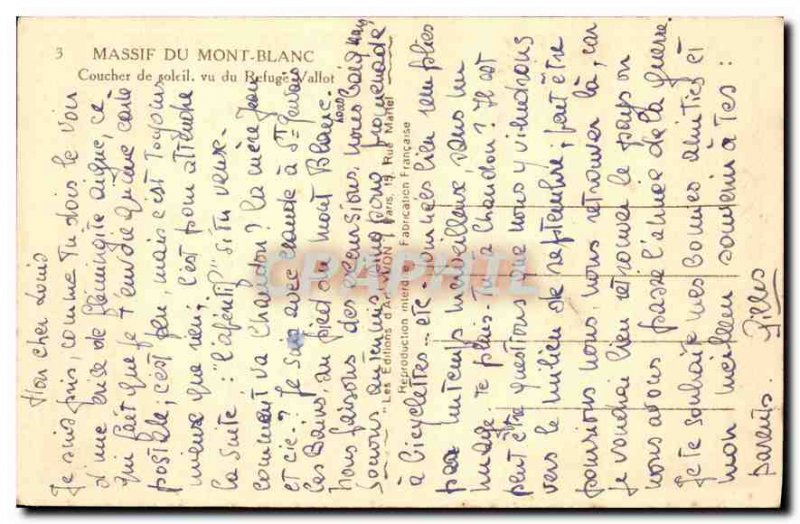 3 MASSIF DU MONT-BLANC
Coucher de soleil, vu du Refuge Vallot
"Les Editions d'Art YVON" Paris, 15, Rue Martel
Reproduction interdite Fabrication Française
CPAPHIL
Mon cher Louis
Je suis pris, comme tu dois le voir
d'une crise de flémingite aigüe, ce
qui fait que je t'envoie qu'une carte
postale; c'est peu, mais c'est toujours
mieux que rien; c'est pour attendre
la suite: "l'apéritif" si tu veux.
comment va Chandon? la mère Jean
et cie? Je suis avec Claude à St=Gervais
les Bains au pied du mont Blanc.
Nous faisons des excursions, nous baignons,
jouons au tennis, allons promenade
à bicyclettes... etc - journées bien remplies
par un temps merveilleux, sans un
nuage. te plais tu à Chandon? Il est
peut être questions que nous y viendrons
vers le milieu de septembre; peut être
pourrions nous, nous retrouver là, car
je voudrai bien retrouver le pays où
nous avons passé l'année de la guerre.
Je te souhaite mes bonnes amitiés et
mon meilleur souvenir à tes:
parents. Gilles